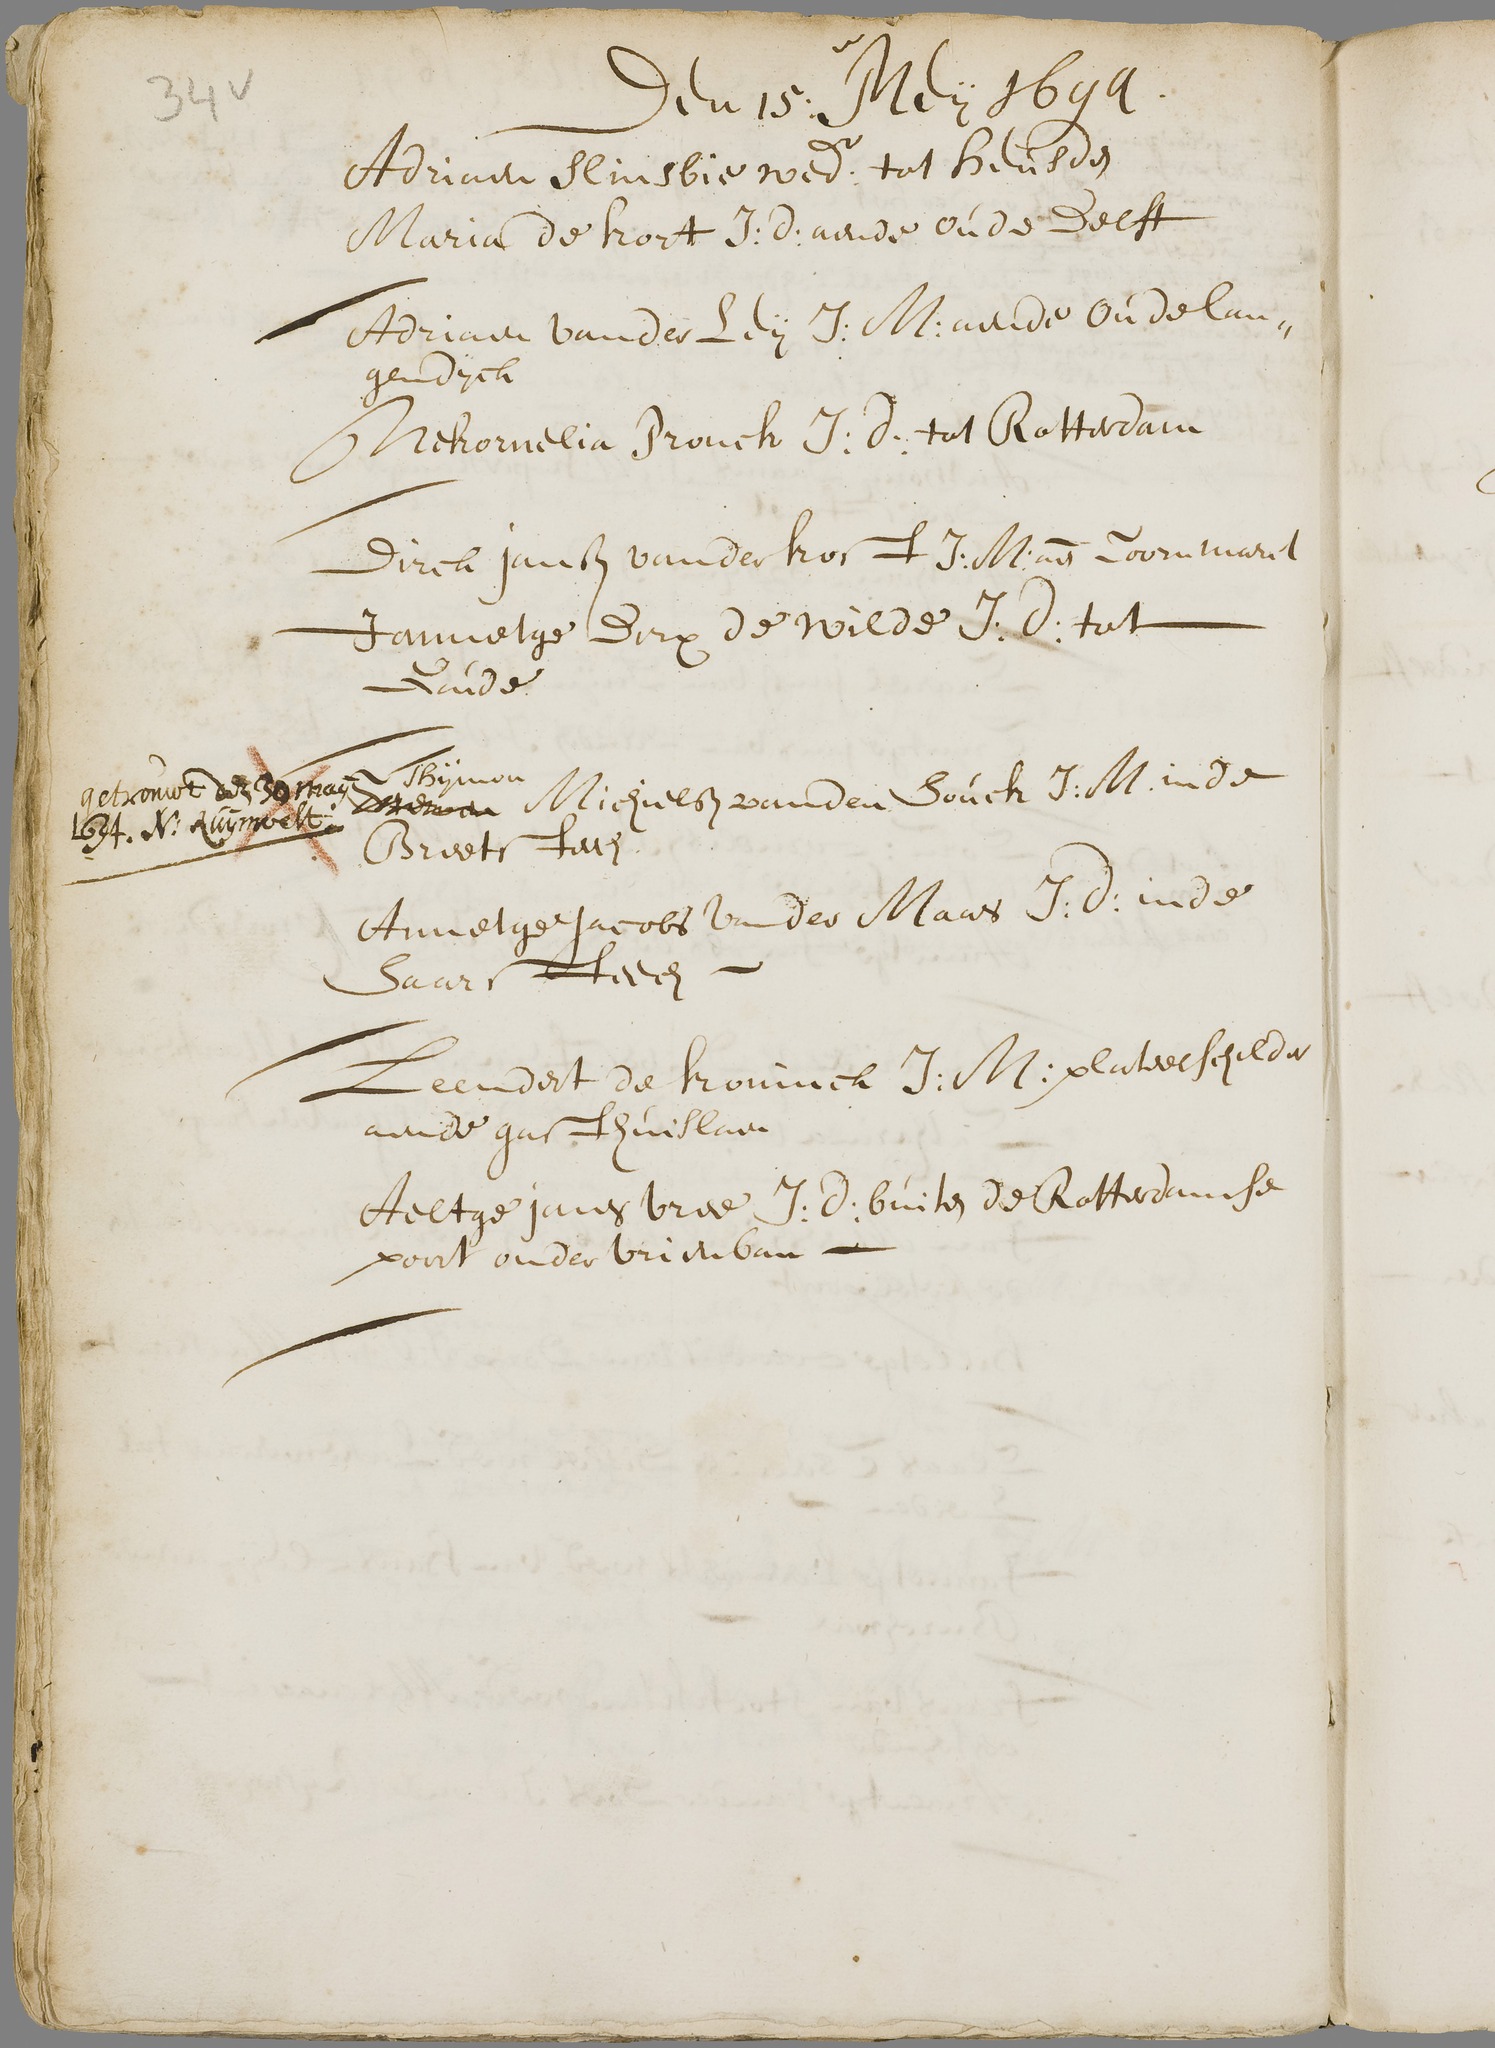 34v
Den 15: Meij 1694.
Adriaen Slinsbie wedr. tot heusden
Maria de kort J: d: aende oude Delft
Adriaen vander Leij J: M: aende Oudelan„
gendijck
Mekornelia Pronck J: d: tot Rotterdam
Dirck jansz vander horst J: M: aen Coornmarct
Jannetge Dirx de wilde J: d: tot
Goude
getrouwt den 30 maij
1694. N: Ruijmvelt.
Thijmon
Michielsz vanden Houck J: M. inde
Breetsteech
Annetge Jacobs vander Maas J: d: inde
Haarsteech
Leendert de koninck J: M: plateelschilder
aende gasthuislaen
Aeltge jans vree J: d: buiten de Rotterdamse
poort onder vrienban